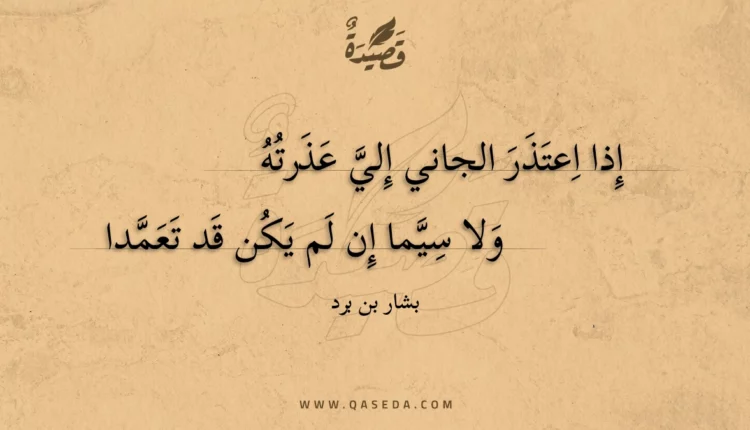 قَصِيْدَةٌ
إِذا اِعتَذَرَ الجاني إِليَّ عَذَرتُهُ
وَلا سِيَّما إِن لَم يَكُن قَد تَعَمَّدا
بشار بن برد
WWW.QASEDA.COM